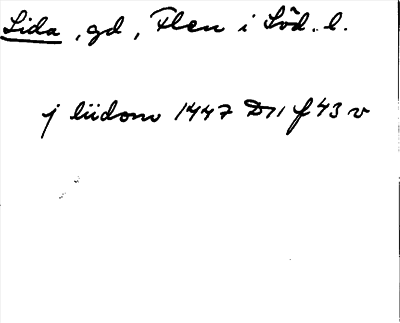 Lida, gd, Flen i Söd. l.
j liidom 1447 D11 f 43 v